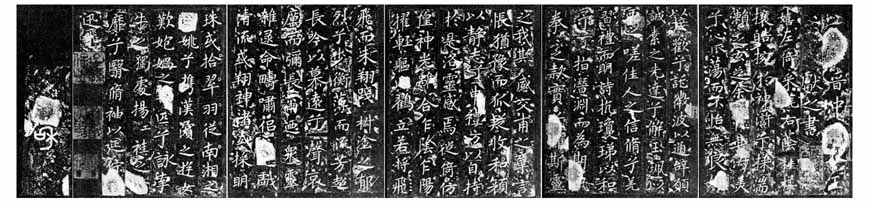 晉中
獻之書
嬉左倚采旄右蔭桂旗
攘皓腕於神滸兮采湍
瀨之玄芝余
兮心振蕩而不怡無良
以接歡兮託微波以通辭願
誠素之先達兮解玉珮以
嗟佳人之信脩兮羌
習禮而明詩抗瓊珶以和
予兮指潛淵而為期
眷之款實斯靈
之我欺感交甫之棄言
悵猶豫而狐疑收和顏
以靜志兮申禮防以自持
於是洛靈感焉徙倚仿
偟神光離合乍陰乍陽
擢輕軀以鶴立若將飛
飛而未翔踐椒塗之郁
烈兮步衡薄而流芳超
長吟以慕遠兮聲哀
厲而彌長爾迺衆靈
雜遝命疇嘯侶或戲
清流或翔神渚或采明
珠或拾翠羽從南湘之
二姚兮攜漢濱之游女
歎匏媧之無匹兮詠牽
牛之獨處揚輕袿之
靡兮翳脩袖以延佇
迅飛